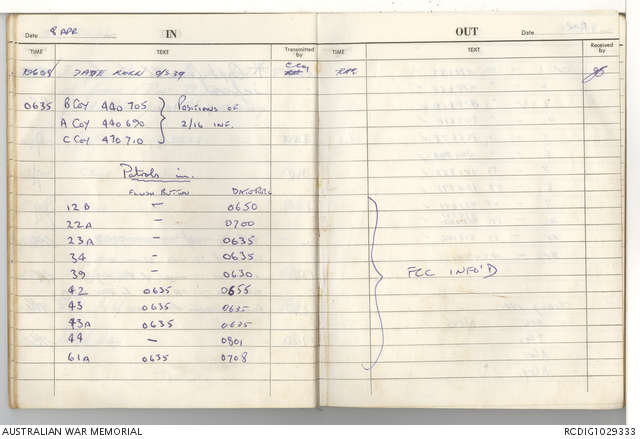 Date 8 APR IN
TIME TEXT Transmitted by
0608
0635 B COY 440 705
A COY 440 690
C COY 470 710
POSITIONS OF
2/16 INF.
Patrols in.
FLUSH BUTTON
12 B – 0650
22A – 0700
23A – 0635
34 – 0635
39 – 0630
42 0635 0655
43 0635 0635
43A 0635 0635
44 – 0801
61A 0635 0708
OUT
TIME TEXT Received by
FCC INFO'D
AUSTRALIAN WAR MEMORIAL RCDIG1029333